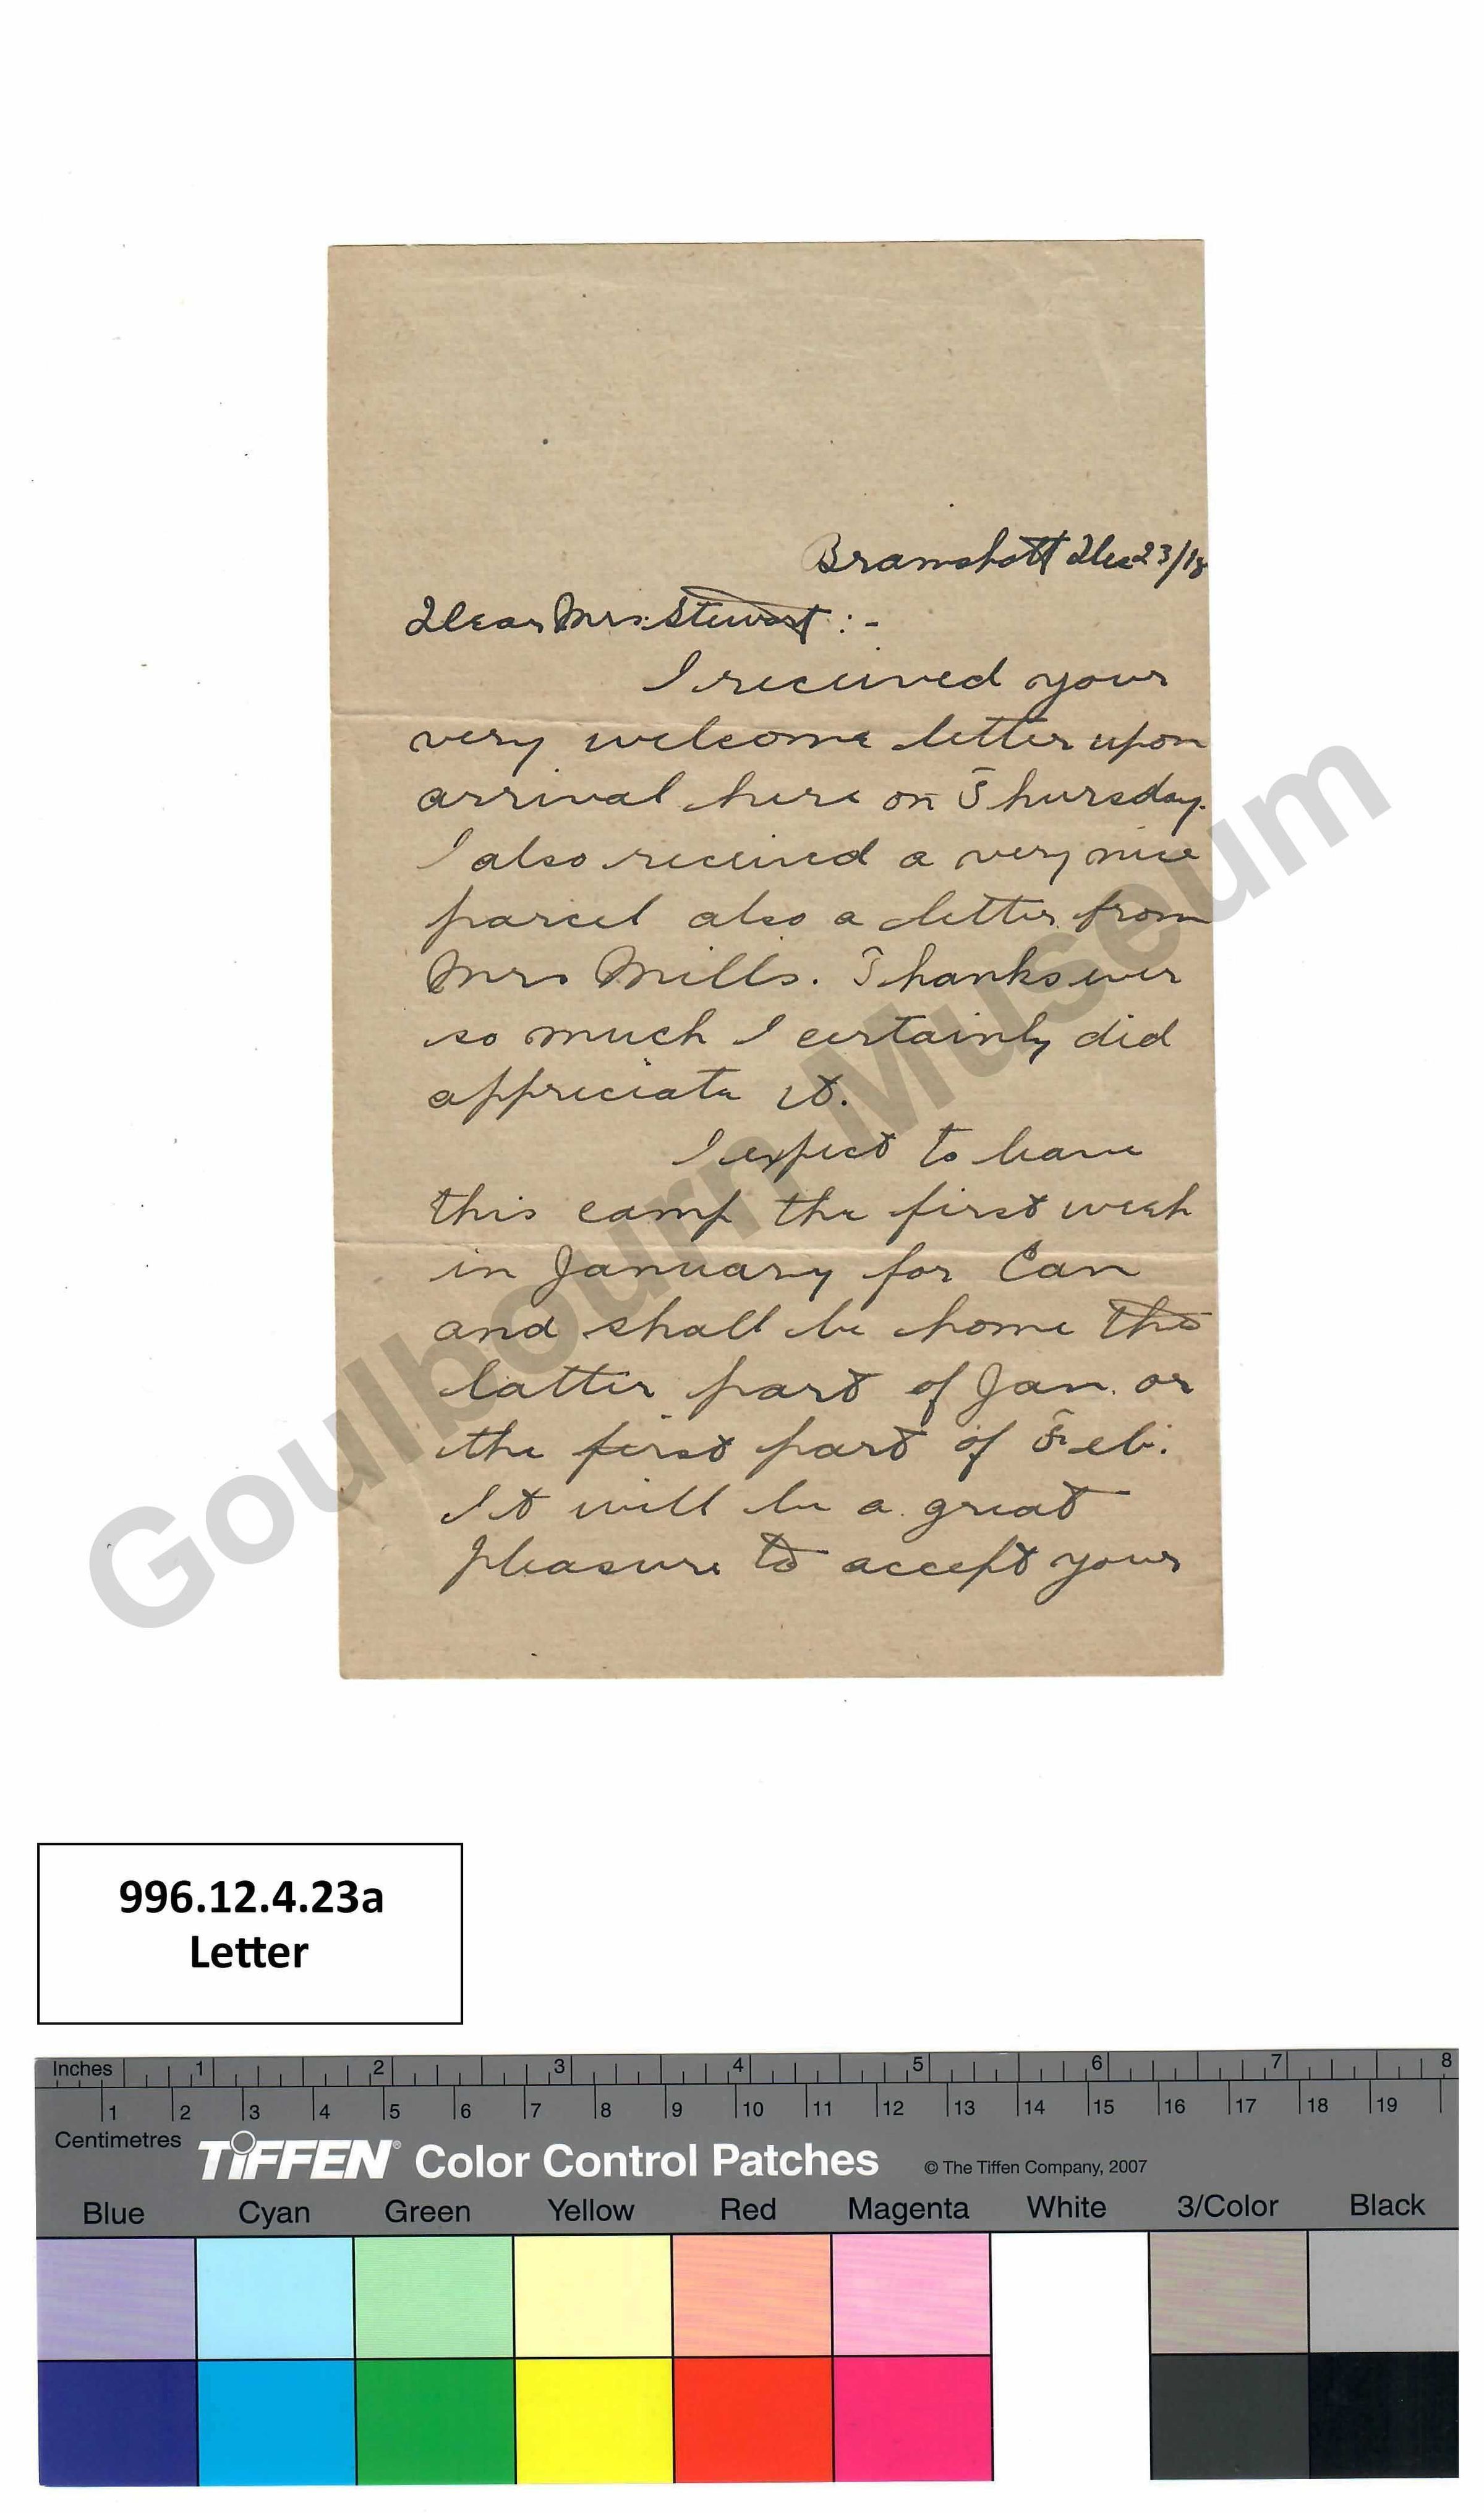 Bramshott Dec 23/18
Dear Mrs. Stewart :-
I received your
very welcome letter upon
arrival here on Thursday.
I also received a very nice
parcel also a letter from
Mrs Mills. Thanks ever
so much I certainly did
appreciate it.
I expect to leave
this camp the first week
in January for Can
and shall be home the
latter part of Jan. or
the first part of Feb.
It will be a great
pleasure to accept your
Goulbourn Museum
996.12.4.23a
Letter
Inches 1 2 3 4 5 6 7 8
1 2 3 4 5 6 7 8 9 10 11 12 13 14 15 16 17 18 19
Centimetres
TIFFEN® Color Control Patches © The Tiffen Company, 2007
Blue Cyan Green Yellow Red Magenta White 3/Color Black